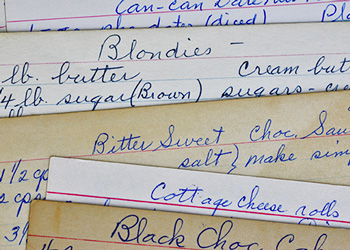 Can-can
(diced)
Blondies -
lb. butter Cream-but
1/4 lb. sugar (Brown) sugars-
Bitter Sweet Choc. Sau
salt} make sim
1 1/2 cps
Cottage cheese rolls
Black Choc.